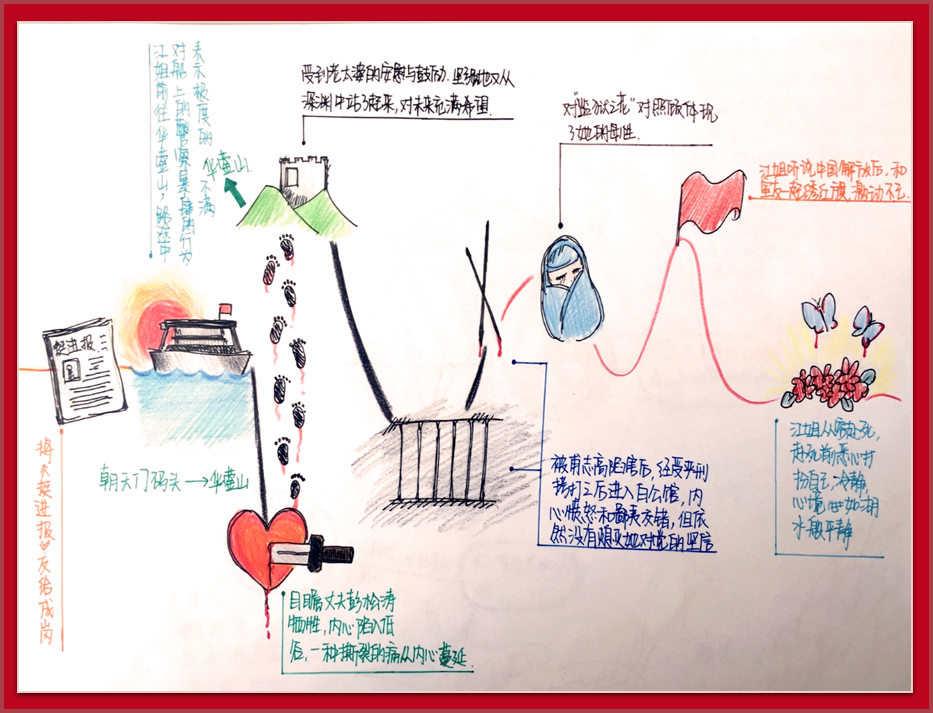 江姐前往华蓥山,路途中
对船上的警察暴躁的行为
表示极度的不满
华蓥山
受到老太婆的安慰与鼓励.坚强地又从
深渊中站了起来,对未来充满希望.
对"监狱之花"对照顾体现
了她的母性.
江姐听说中国解放后,和
室友一起绣红旗,激动不已
挺进报
将《挺进报》交给成岗
朝天门码头→华蓥山
目睹丈夫彭松涛
牺牲,内心陷入低
谷,一种撕裂的痛从内心蔓延.
被甫志高陷害后,经受严刑
拷打之后进入白公馆,内
心愤怒和鄙夷,但依
然没有熄灭她对党的坚信
江姐从容赴死,
赴死前悉心打
扮自己,冷静,
心境如湖
水般平静